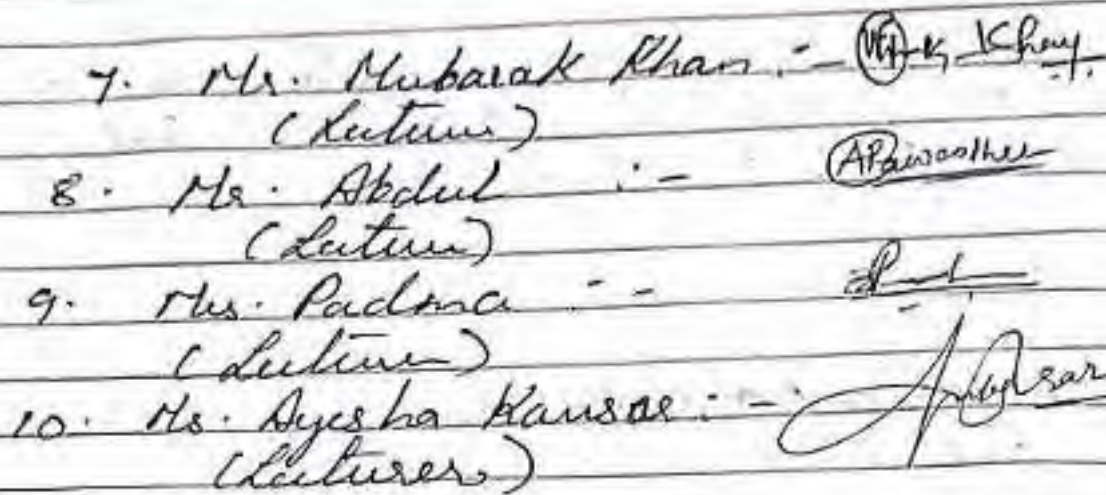 7. Mr. Mubarak Khan :- Khan
(Lecturer)
8. Mr. Abdul :-
(Lecturer)
9. Mrs. Padma :-
(Lecturer)
10. Ms. Ayesha Kausar :-
(Lecturer)